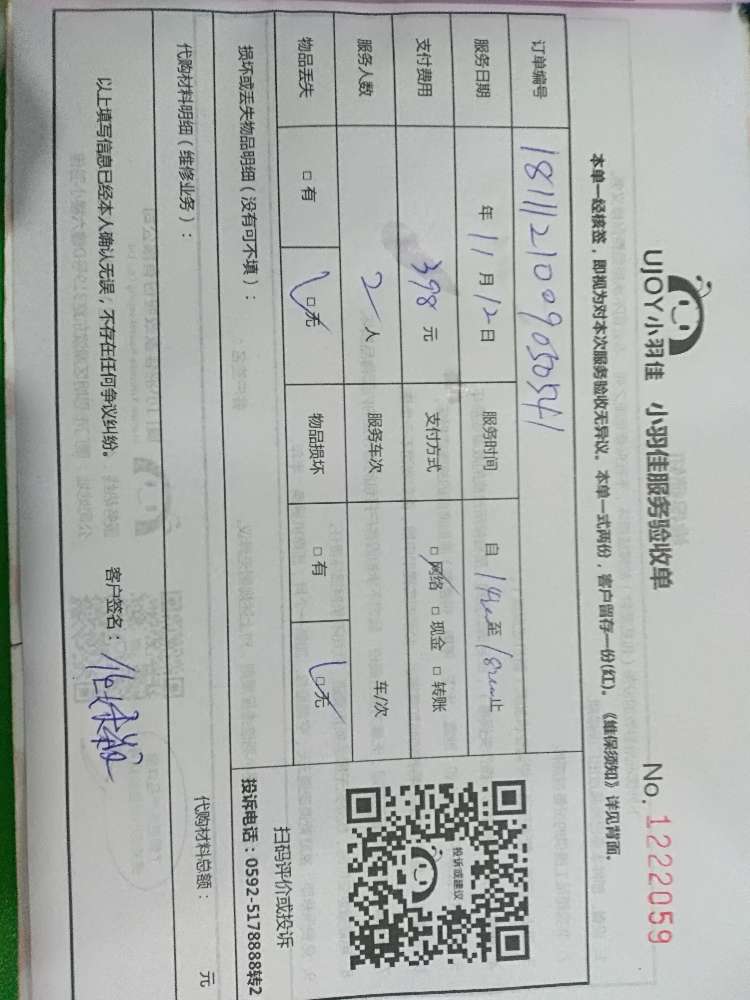 UJOY小羽佳 小羽佳服务验收单 No. 1222059
本单一经核签，即视为对本次服务验收无异议。本单一式两份，客户留存一份(红)。《维保须知》详见背面。
订单编号 18111121009050541
服务日期 年 11 月 12 日 服务时间 自 至 止
支付费用 398 元 支付方式 □ 网络 □ 现金 □ 转账
服务人数 2 人 服务车次 车/次
物品丢失 □ 有 □ 无 物品损坏 □ 有 □ 无
投诉或建议
扫码评价或投诉
损坏或丢失物品明细（没有可不填）：
投诉电话：0592-5178888转2
代购材料明细（维修业务）：
代购材料总额： 元
以上填写信息已经本人确认无误，不存在任何争议纠纷。 客户签名：